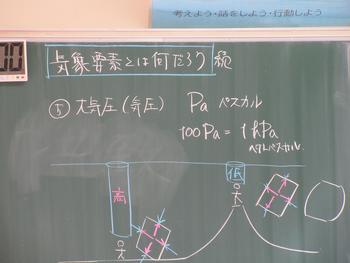 考えよう・話をしよう・行動しよう
気象要素とは何だろう 続
⑤ 大気圧(気圧) Pa パスカル
100Pa = 1hPa
ヘクトパスカル
高
低